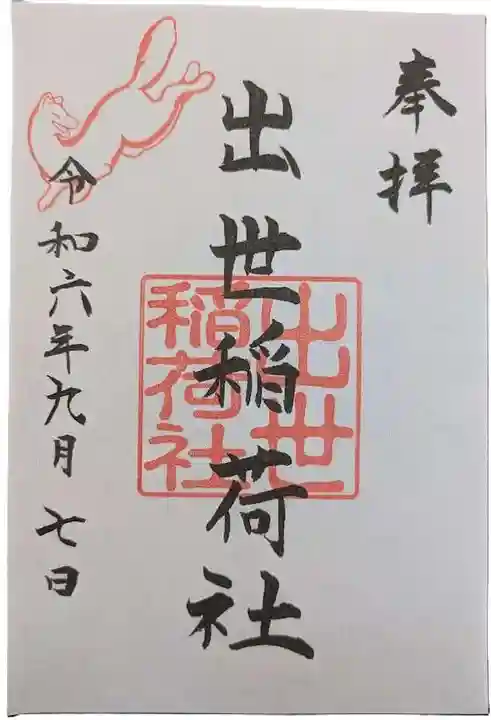 奉拝
出世稲荷社
出世
稲荷社
令和六年九月七日